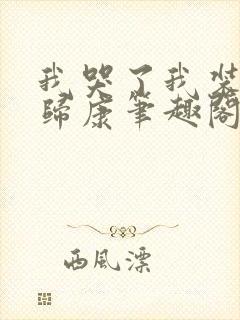 我哭了我装
歸康筆趣閣
西風漂